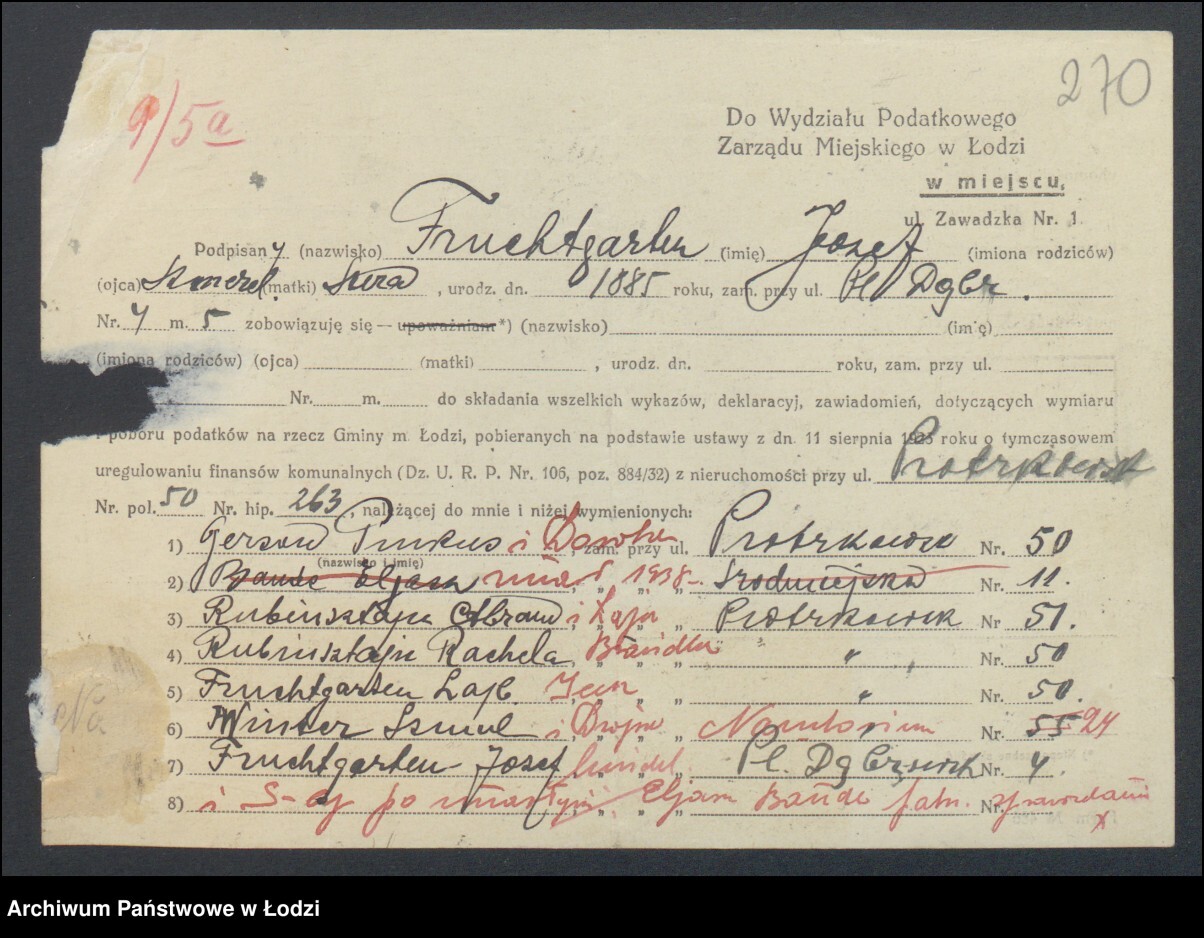 270
9/5a
Do Wydziału Podatkowego
Zarządu Miejskiego w Łodzi
w miejscu,
ul. Zawadzka Nr. 1.
Podpisany (nazwisko) Fruchtgarten (imię) Josef (imiona rodziców)
(ojca) Szmerel (matki) Sura, urodz. dn. 1885 roku, zam. przy ul. Pl Dąbr.
Nr. 4 m. 5 zobowiązuję się — upoważniam *) (nazwisko) (imię)
(imiona rodziców) (ojca) (matki) , urodz. dn. roku, zam. przy ul.
Nr. m. do składania wszelkich wykazów, deklaracyj, zawiadomień, dotyczących wymiaru
i poboru podatków na rzecz Gminy m. Łodzi, pobieranych na podstawie ustawy z dn. 11 sierpnia 1923 roku o tymczasowem
uregulowaniu finansów komunalnych (Dz. U. R. P. Nr. 106, poz. 884/32) z nieruchomości przy ul. Piotrkowsk
Nr. pol. 50 Nr. hip. 263, należącej do mnie i niżej wymienionych:
1) Gerson Pinkus i zam. przy ul. Piotrkowsk Nr. 50
(nazwisko i imię)
2) Bande Eljasz zmarł 1938 „ „ „ Śródmiejska Nr. 11.
3) Rubinsztajn Abram i Łaja „ „ Piotrkowsk Nr 51.
4) Rubinsztajn Rachela Brandla „ „ „ „ Nr. 50
5) Fruchtgarten Lajb „ „ „ Nr. 50.
6) Winter Szmul i „ „ Narutowicza Nr. 55 24
7) Fruchtgarten Josef „ „ Pl. Dąbrowsk Nr. 4.
8) i S-cy po zmarłym „ „ „ Eljasz Bande Nr.
Archiwum Państwowe w Łodzi